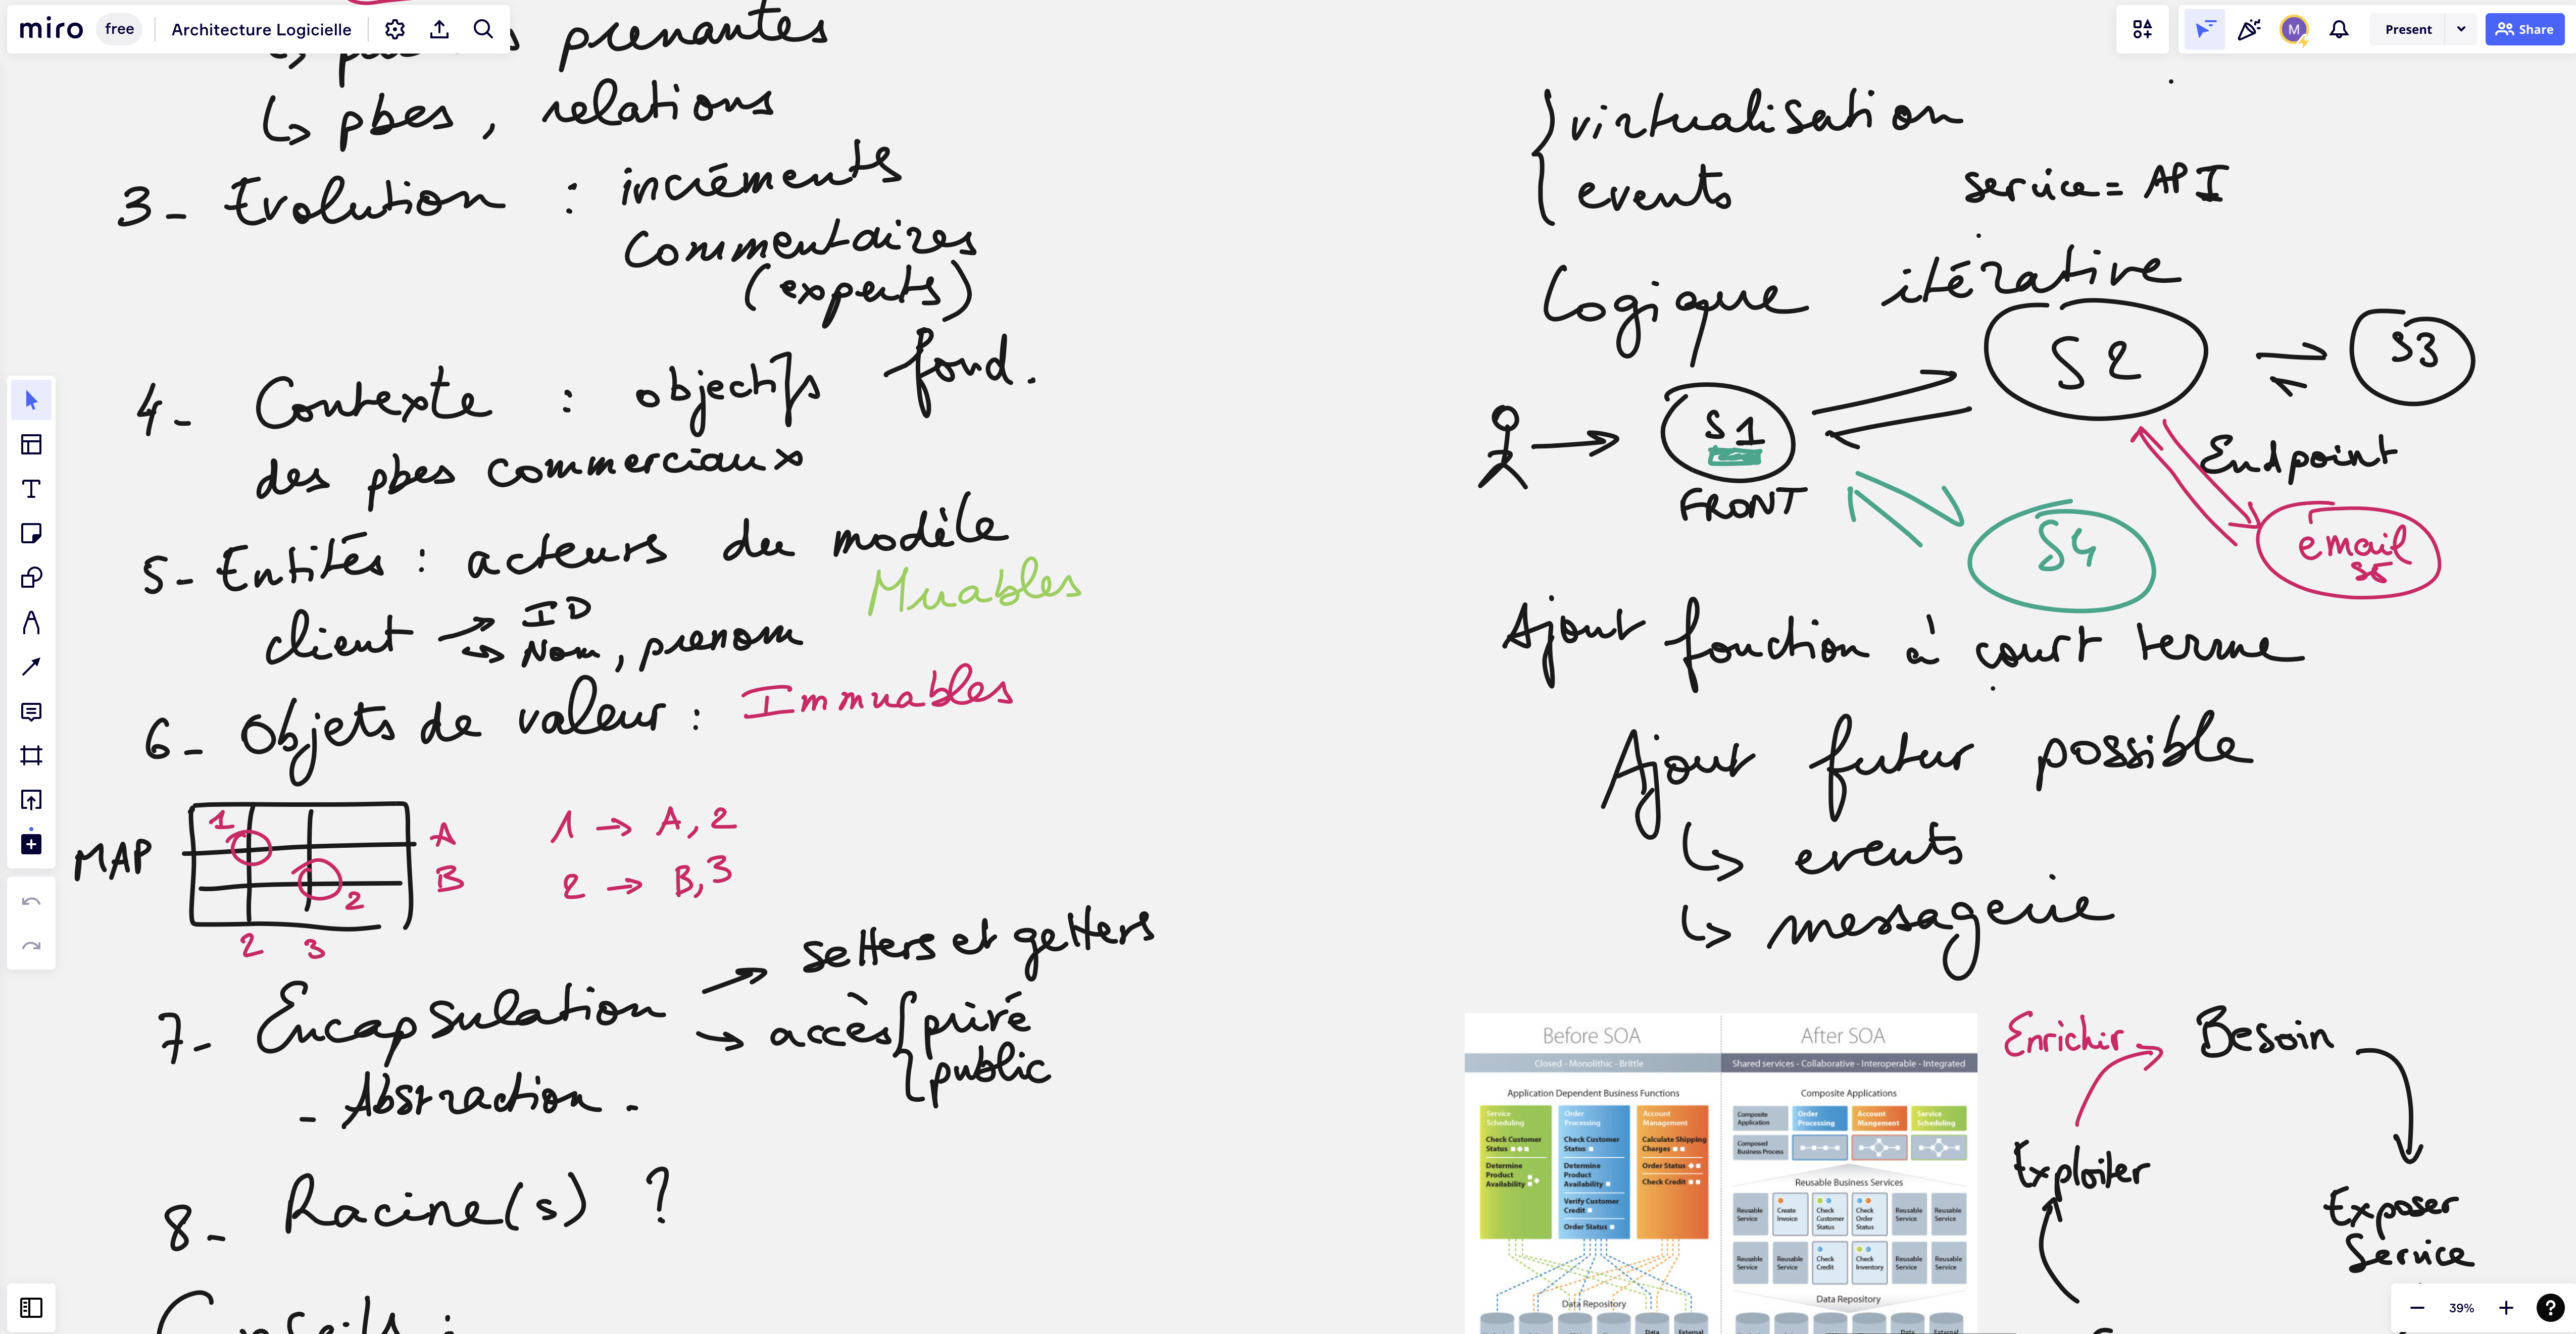 miro free Architecture Logicielle
Present Share
prenantes
↳ pbes, relations
3- Evolution : incréments
Commentaires
(experts)
4- Contexte : objectifs fond.
des pbes commerciaux
5- Entités : acteurs du modèle
Muables
client → ID
↪ Nom, prenom
6- Objets de valeur : Immuables
MAP
1
2
A
B
2 3
1 → A, 2
2 → B, 3
7- Encapsulation → setters et getters
→ accès { privé
public
- Abstraction -
8- Racine(s) ?
Conseils :
{ virtualisation
events
service = API
Logique itérative
S1
FRONT
S2
S3
Endpoint
S4
email
S5
Ajout fonction à court terme
Ajout futur possible
↳ events
↳ messagerie
Before SOA
Closed - Monolithic - Brittle
Application Dependent Business Functions
Service Scheduling
Check Customer Status
Determine Product Availability
Order Processing
Check Customer Status
Determine Product Availability
Verify Customer Credit
Order Status
Account Management
Calculate Shipping Charges
Order Status
Check Credit
Data Repository
Data
External
After SOA
Shared services - Collaborative - Interoperable - Integrated
Composite Applications
Composite Application
Order Processing
Account Mangement
Service Scheduling
Composed Business Process
Reusable Business Services
Reusable Service
Create Invoice
Check Customer Status
Check Order Status
Reusable Service
Reusable Service
Reusable Service
Reusable Service
Check Credit
Check Inventory
Reusable Service
Reusable Service
Data Repository
Data
External
Enrichir
Besoin
Exploiter
Exposer
Service
39%